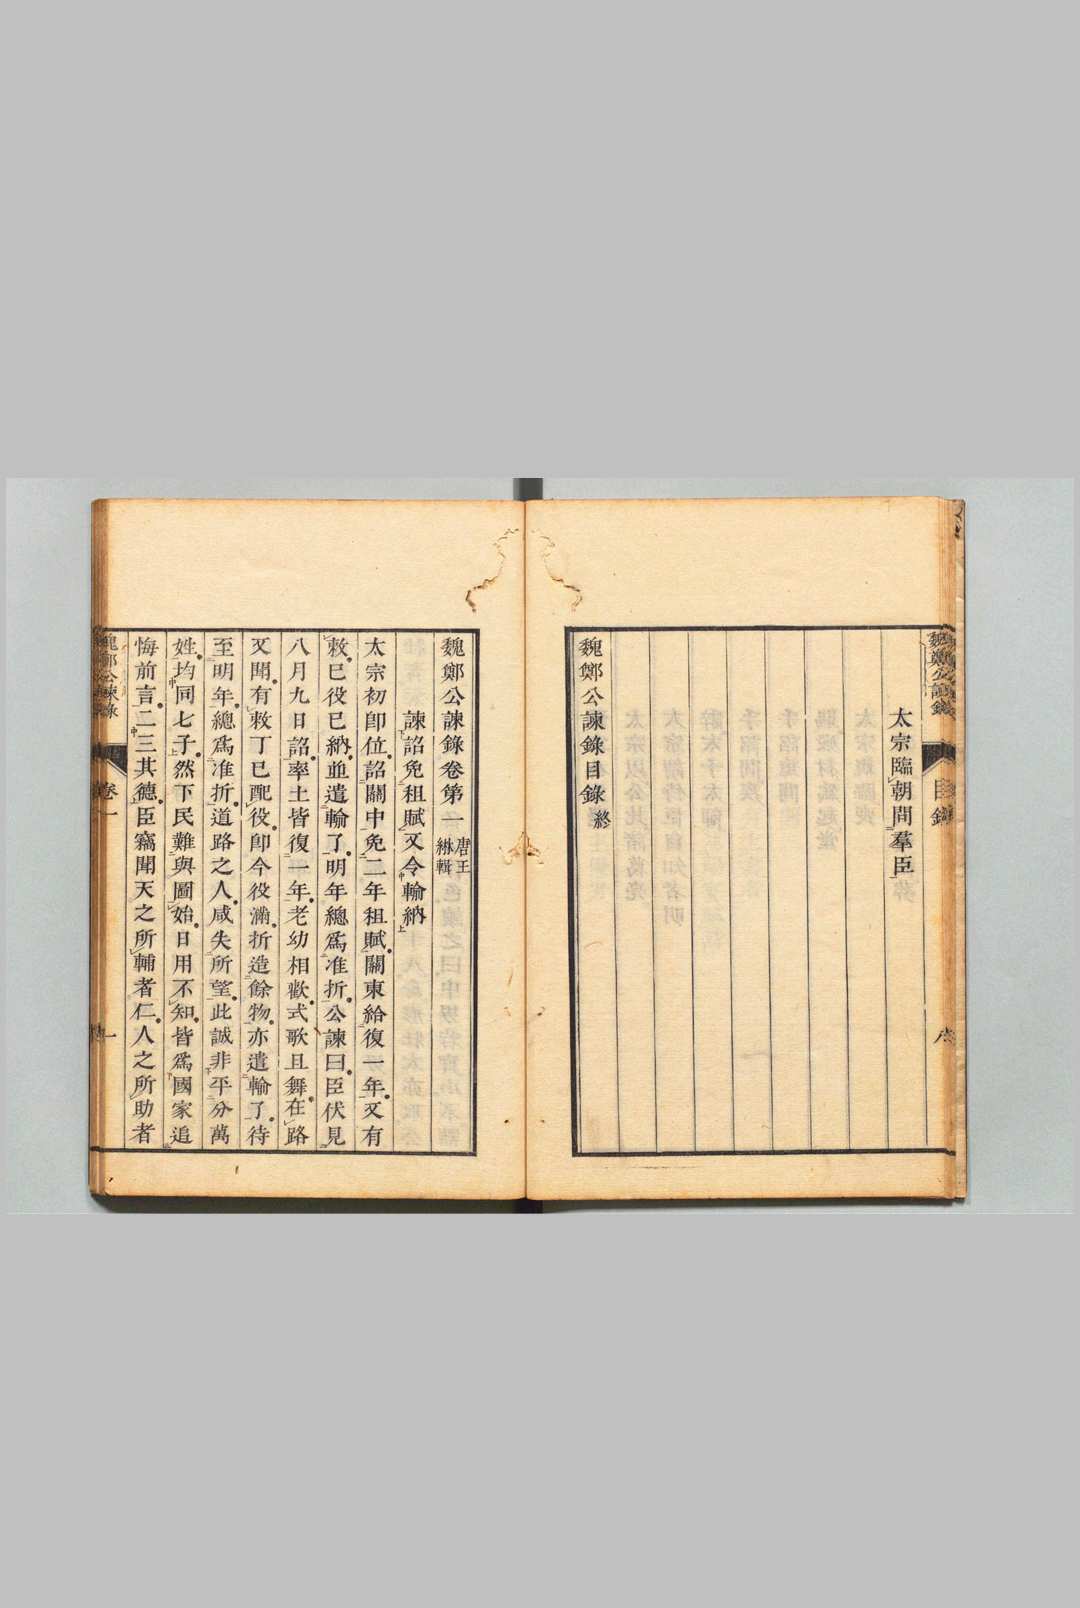 太宗臨朝問羣臣
魏鄭公諫錄目錄終
魏鄭公諫錄卷第一 唐王綝輯
諫詔免租賦又令輸納
太宗初卽位詔關中免二年租賦關東給復一年又有
敕已役已納並遣輸了明年總爲准折公諫曰臣伏見
八月九日詔率土皆復一年老幼相歡式歌且舞在路
又聞有敕丁已配役卽令役滿折造餘物亦遣輸了待
至明年總爲准折道路之人咸失所望此誠非平分萬
姓均同七子然下民難與圖始日用不知皆爲國家追
悔前言二三其德臣竊聞天之所輔者仁人之所助者
魏鄭公諫錄
卷一
一